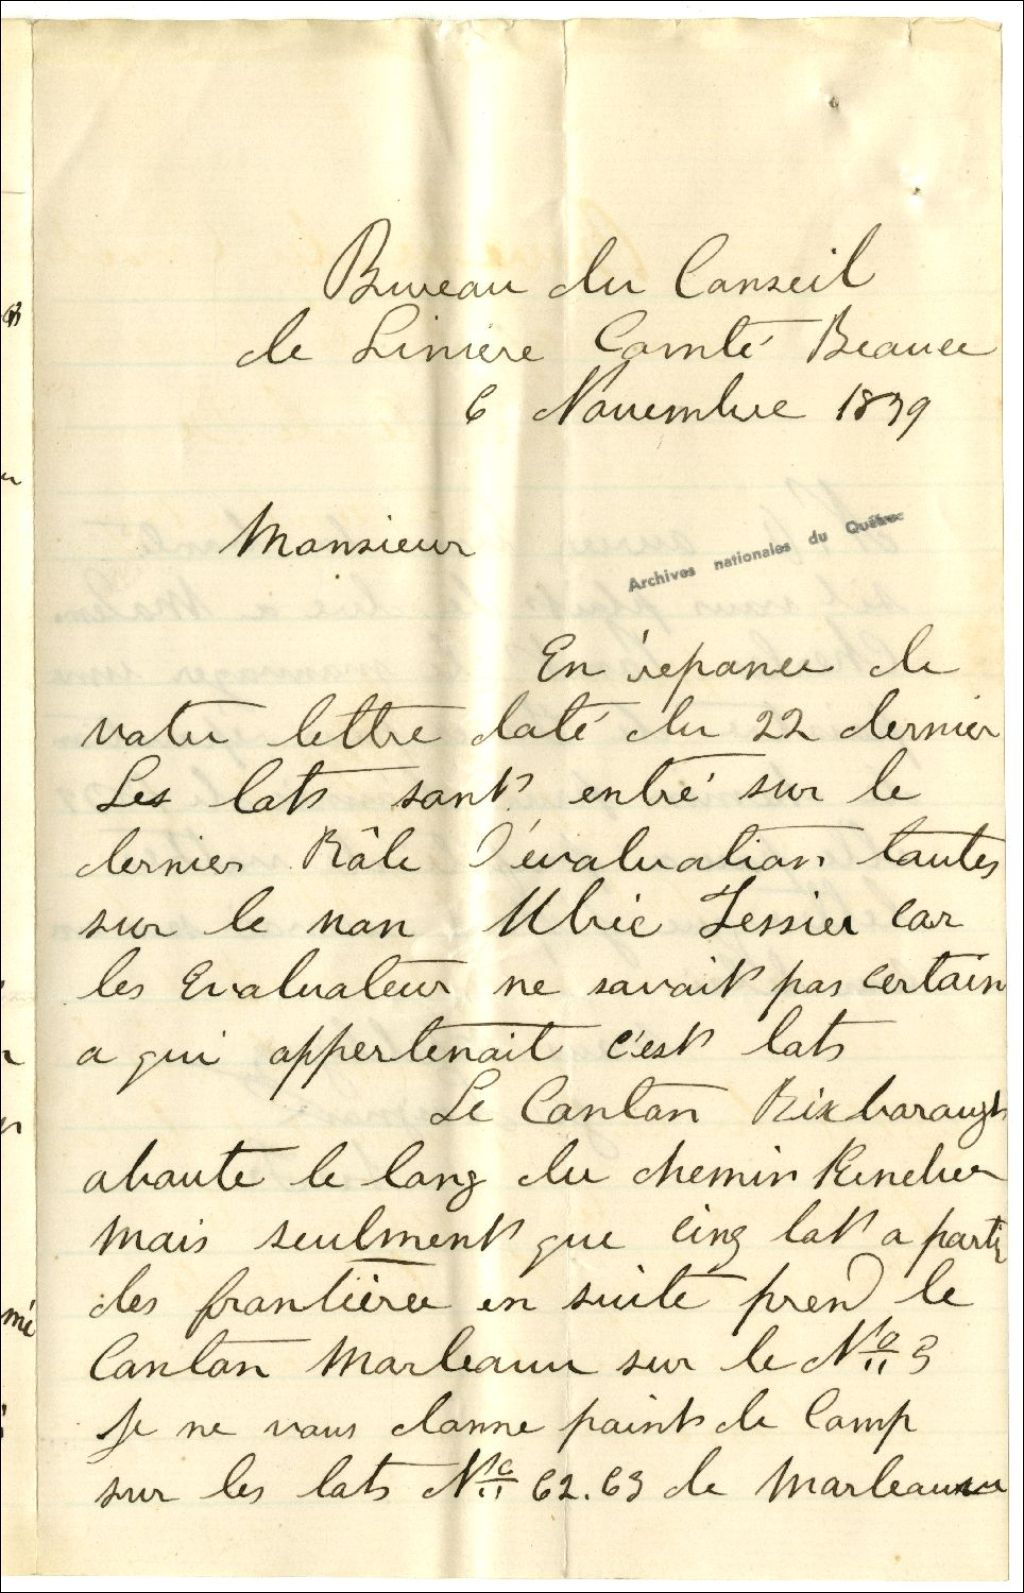 Bureau du Conseil
de Liniere Comté Beauce
6 Novembre 1879
Monsieur
Archives nationales du Québec
En réponce de
votre lettre daté du 22 dernier
Les lots sont entré sur le
dernier Rôle D'évaluation toutes
sur le non Ulric Tessier car
les Evaluateur ne savait pas certain
a qui appertenait c'est lots
Le Canton Rixborough
aboute le long du chemin Kinebec
mais seulment que cinq lot a partir
des frontière en suite prend le
Canton Marleaux sur le No 3
Je ne vous donne point de Comp
sur les lots No 62.63 de Marleaux